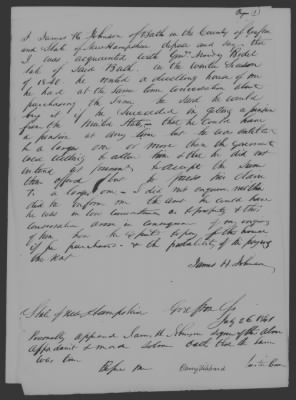 Page (1)
I James H Johnson of Bath in the County of Grafton
and State of New Hampshire depose and say that
I was acquainted with Genl Moody Bedel
late of Said Bath. in the winter season
of 1840. he rented a dwelling house of me
he had at the same time conversation about
purchasing the same he said he would
buy it if he succeeded in getting a pension
from the United States that he could have
a pension at any time but he was entitled
to a larger one or more than the Government
were willing to allow him & that he did not
intend at present to accept the
then offered but to press his claim
for a larger one - I did not enquire neither
did he inform me the sum he could have
he was in low circumstances as to property & this
conversation arose in consequence of my enquiry
of him how he to pay for the house
if he purchased & the probability of his paying
the rent
James H. Johnson
State of New Hampshire Grafton Ss
July 26 1841
Personally appeared James H. Johnson signer of the above
Affidavit & made solemn oath that the same
was true
Before me
Justice Peace